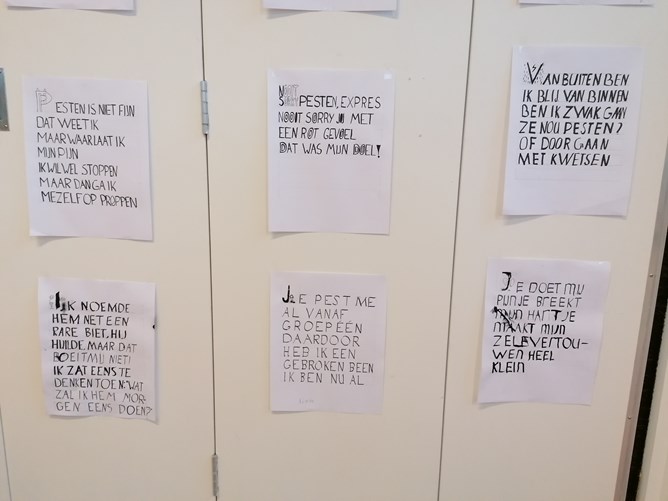 PESTEN IS NIET FIJN
DAT WEET IK
MAAR WAAR LAAT IK
MIJN PIJN
IK WIL WEL STOPPEN
MAAR DAN GA IK
MEZELF OP PROPPEN
PESTEN, EXPRES
NOOIT SORRY JIJ MET
EEN ROT GEVOEL
DAT WAS MIJN DOEL!
VAN BUITEN BEN
IK BLIJ VAN BINNEN
BEN IK ZWAK GAAN
ZE NOU PESTEN?
OF DOOR GAAN
MET KWETSEN
IK NOEMDE
HEM NET EEN
RARE BIET, HIJ
HUILDE MAAR DAT
BOEIT MIJ NIET!
IK ZAT EENS TE
DENKEN TOEN: WAT
ZAL IK HEM MOR-
GEN EENS DOEN?
JE PEST ME
AL VANAF
GROEP ÉÉN
DAARDOOR
HEB IK EEN
GEBROKEN BEEN
IK BEN NU AL
JE DOET MIJ
PIJN JE BREEKT
MIJN HARTJE
MAAKT MIJN
ZELFVERTOU-
WEN HEEL
KLEIN